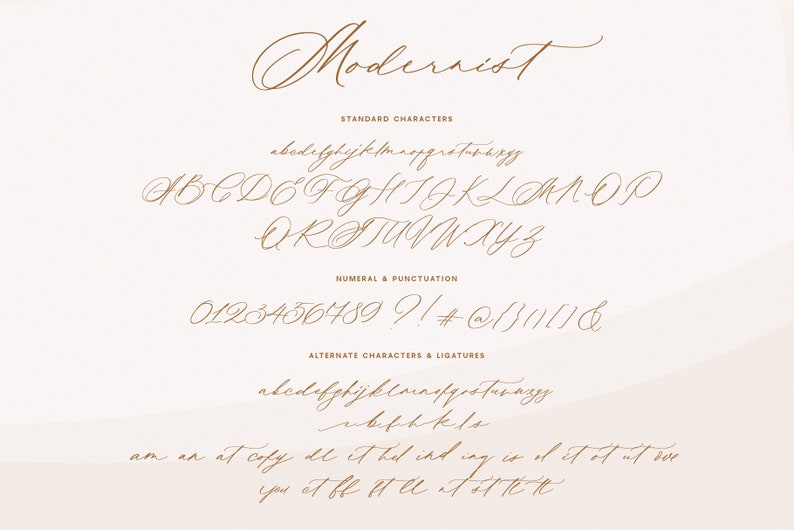 Modernist
STANDARD CHARACTERS
abcdefghijklmnopqrstuvwxyz
ABCDEFGHIJKLMNOP
QRSTUVWXYZ
NUMERAL & PUNCTUATION
0123456789 ?!#@{}()[]&
ALTERNATE CHARACTERS & LIGATURES
abcdefghijklmnopqrstuvwxyz
bfhkls
am an at copy dl et hel ind ing is ol it ot ut ove
you ct ff ft ll nt st tt tt